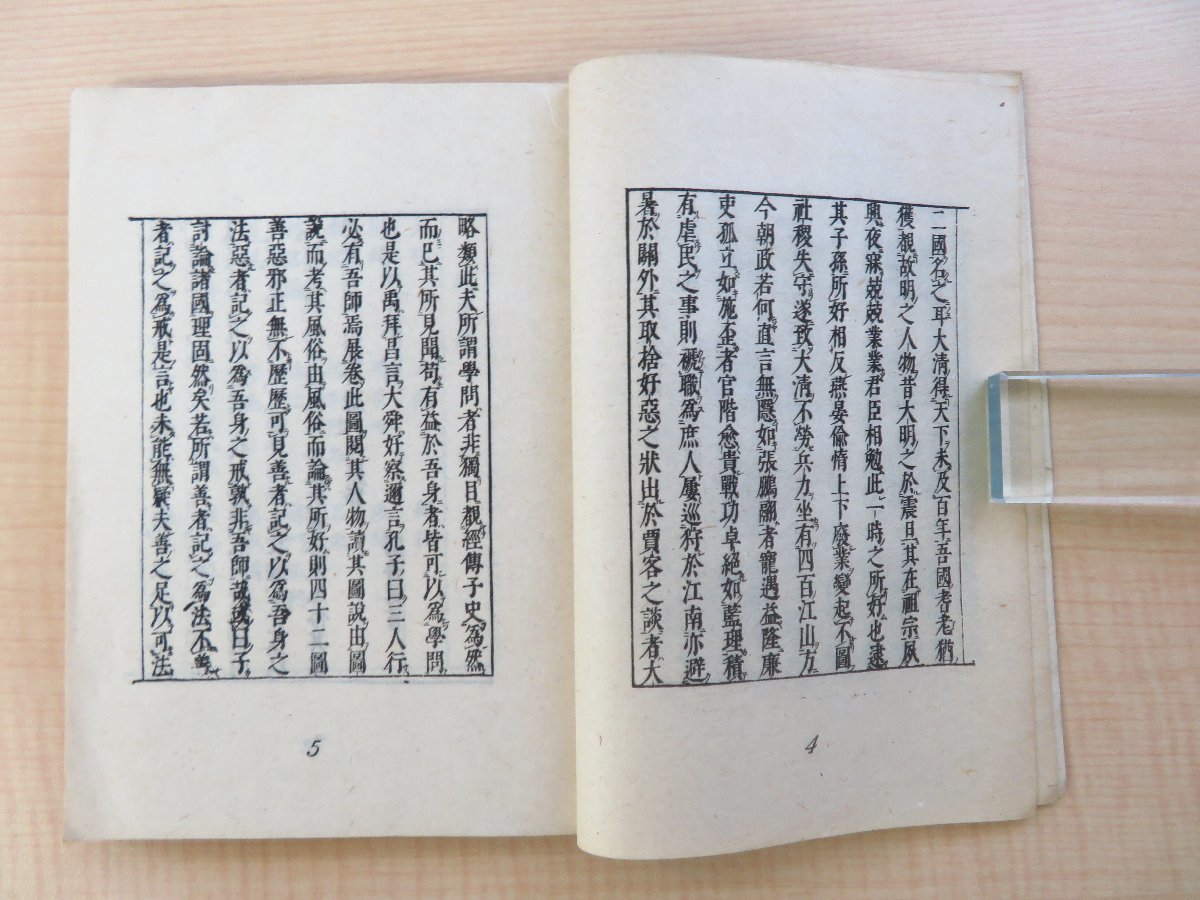 二國名之耳大清得天下未及百年吾國耆老猶
獲覩故明之人物昔大明之於震旦其在祖宗夙
興夜寐兢兢業業君臣相勉此一時之所好也逮
其子孫所好相反燕晏偷惰上下廢業變起不圖
社稷失守遂致大清不勞兵力坐有四百江山方
今朝政若何直言無隱如張鵬翮者寵遇益隆廉
吏孤立如施丕者官階愈貴戰功卓絕如藍理積
有虐民之事則褫職為庶人屢巡狩於江南亦避
暑於關外其取捨好惡之狀出於賈客之談者大
4
略類此夫所謂學問者非獨目覩經傳子史為然
而已其所見聞苟有益於吾身者皆可以為學問
也是以禹拜昌言大舜好察邇言孔子曰三人行
必有吾師焉展卷此圖閱其人物讀其圖說由圖
說而考其風俗由風俗而論其所好則四十二圖
善惡邪正無不歷歷可見善者記之以為吾身之
法惡者記之以為吾身之戒孰非吾師哉或曰子
討論諸國理固然矣若所謂善者記之為法不善
者記之為戒是言也未能無疑夫善之足以可法
5